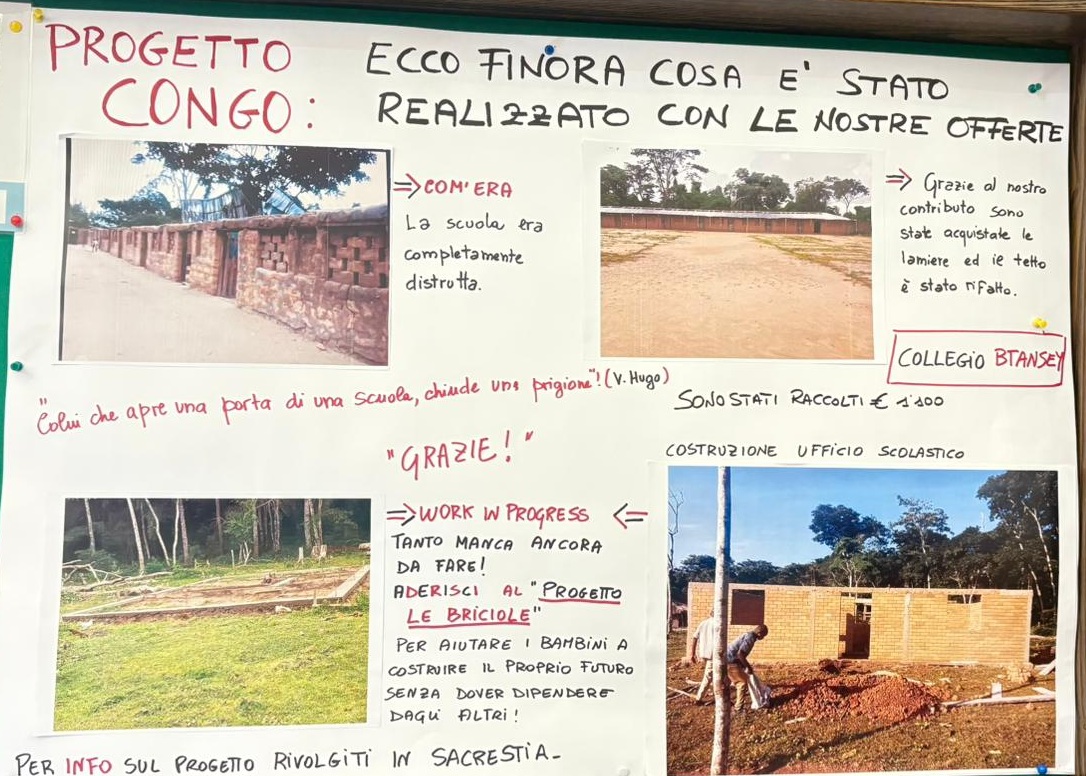 PROGETTO
CONGO:
ECCO FINORA COSA E' STATO
REALIZZATO CON LE NOSTRE OFFERTE
⇒ COM'ERA
La scuola era
completamente
distrutta.
⇒ Grazie al nostro
contributo sono
state acquistate le
lamiere ed ie tetto
è stato rifatto.
COLLEGIO BTANSEY
"Colui che apre una porta di una scuola, chiude una prigione"! (V. Hugo)
SONO STATI RACCOLTI € 1'100
"GRAZIE!"
COSTRUZIONE UFFICIO SCOLASTICO
⇒ WORK IN PROGRESS ⇐
TANTO MANCA ANCORA
DA FARE!
ADERISCI AL "PROGETTO
LE BRICIOLE"
PER AIUTARE I BAMBINI A
COSTRUIRE IL PROPRIO FUTURO
SENZA DOVER DIPENDERE
DAGLI ALTRI!
PER INFO SUL PROGETTO RIVOLGITI IN SACRESTIA-